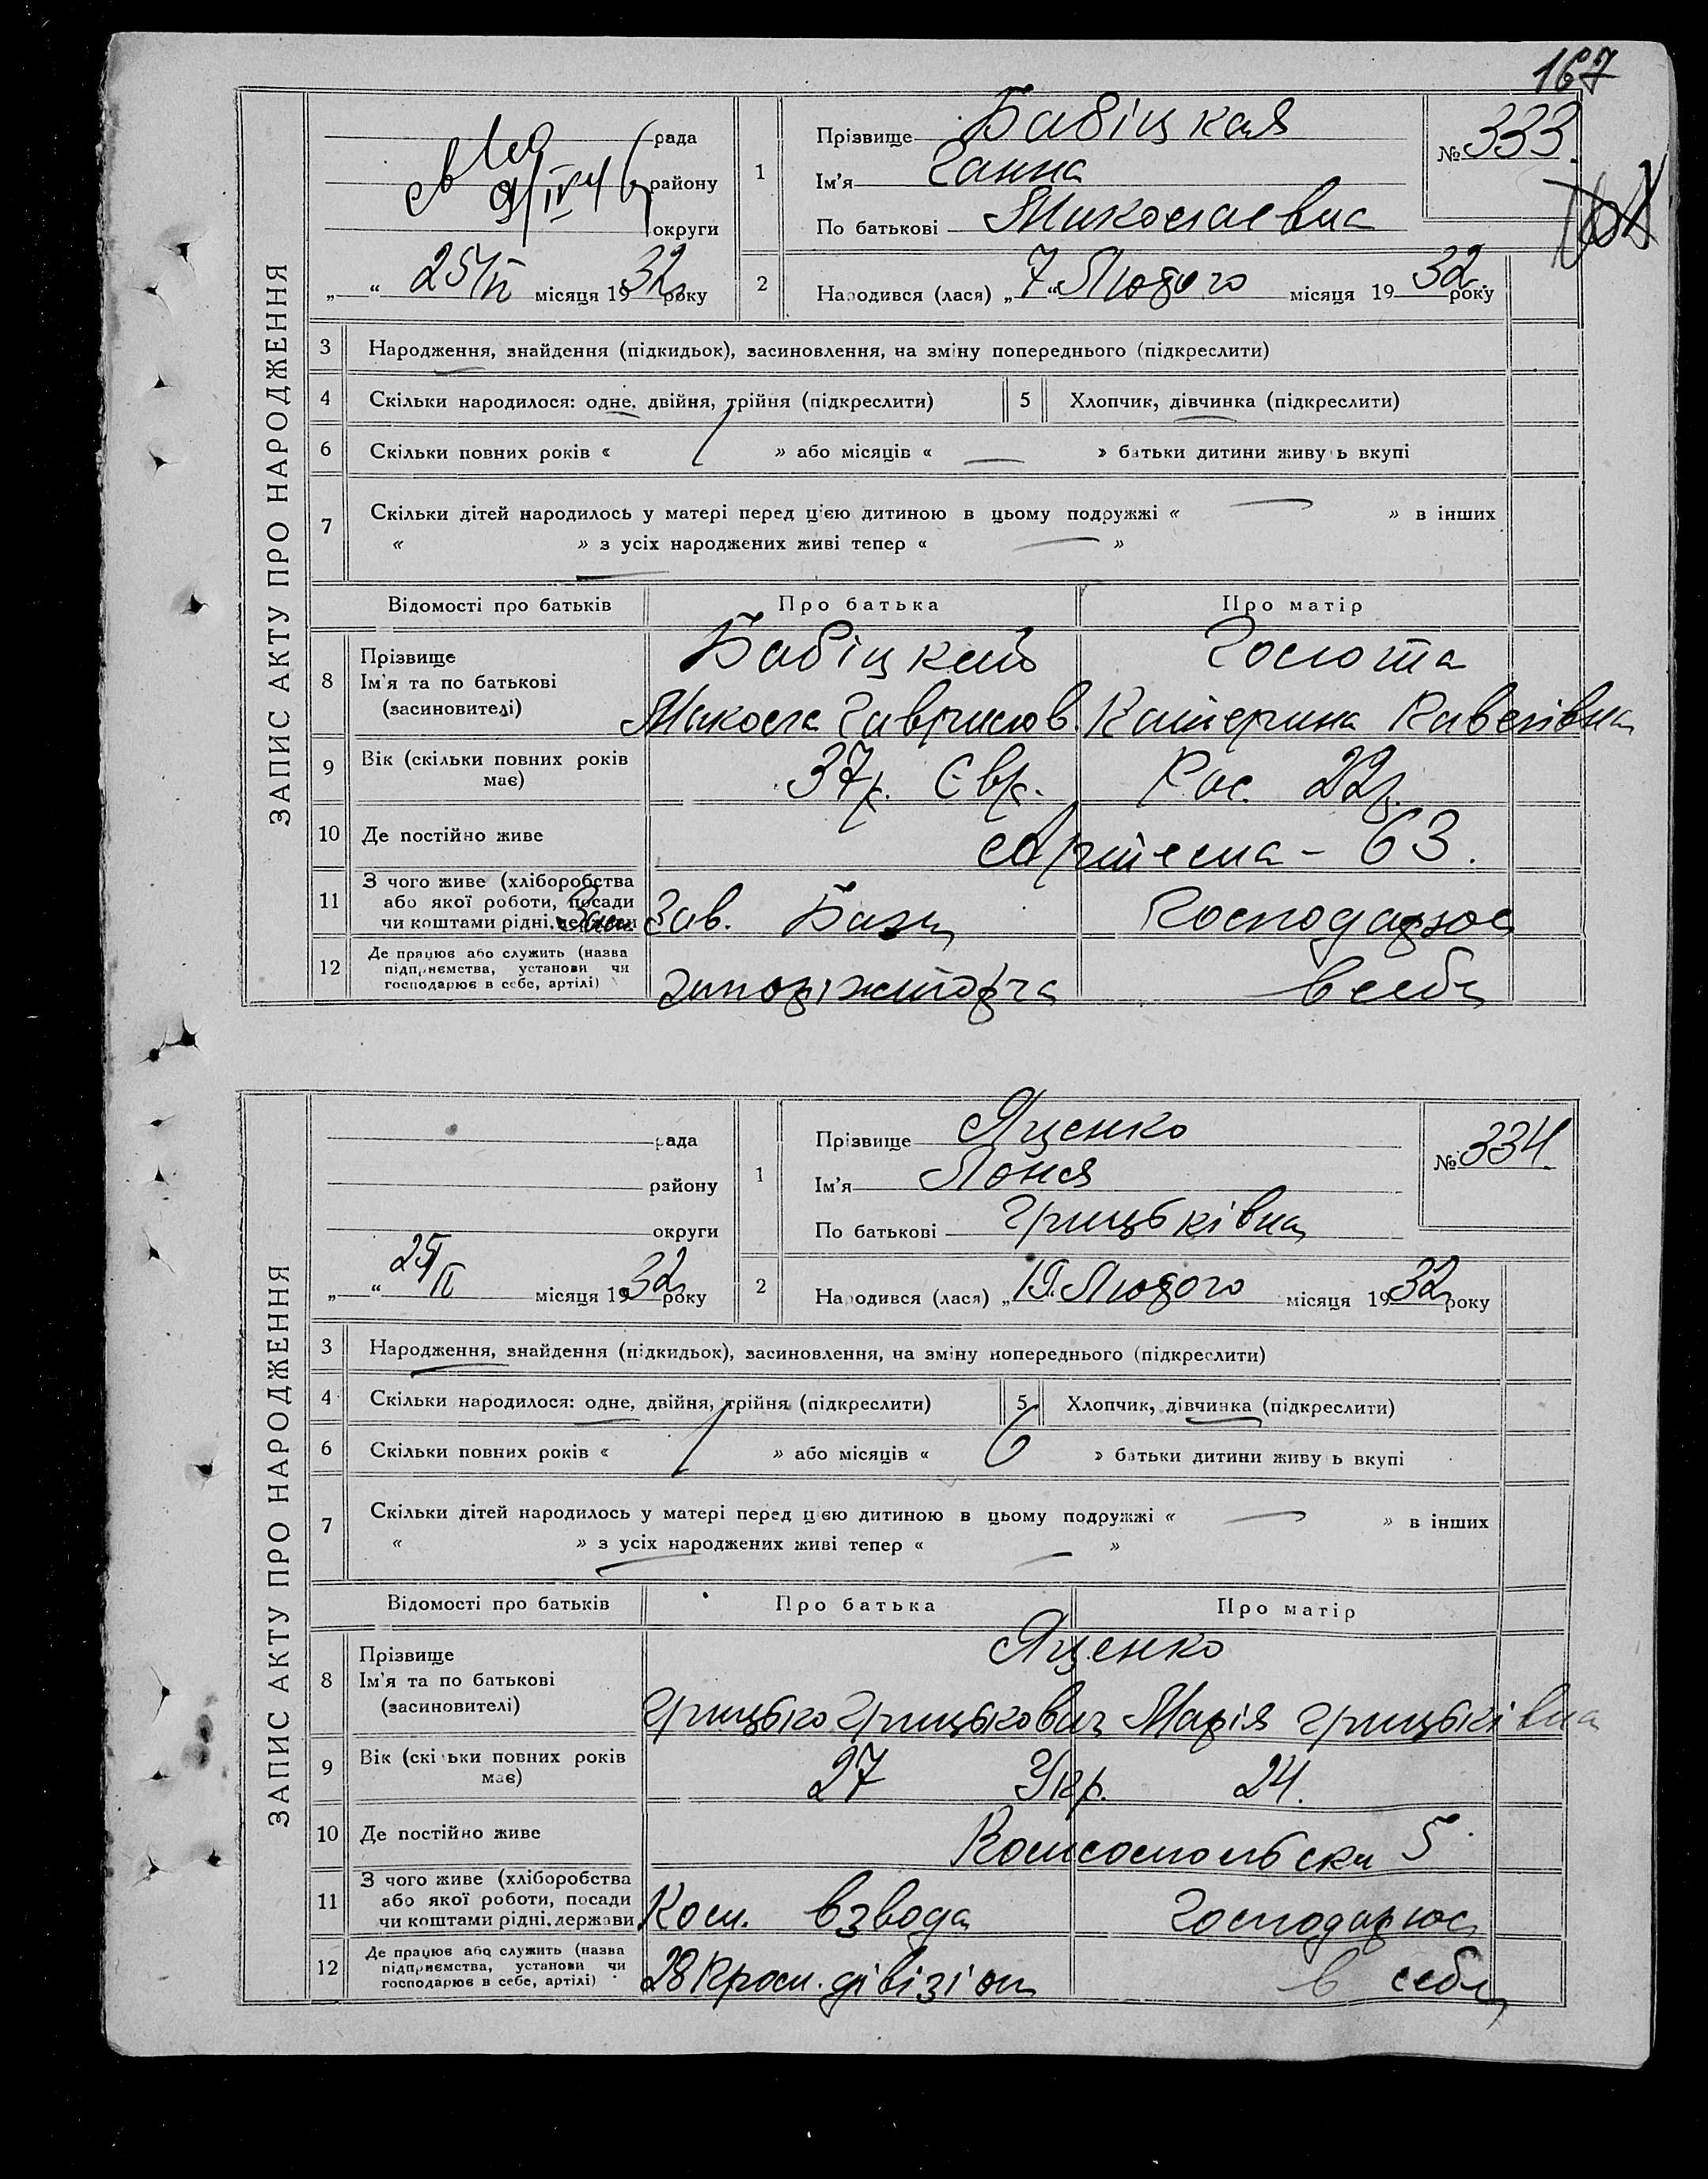 167
ЗАПИС АКТУ ПРО НАРОДЖЕННЯ
рада
району
округи
„ “ 25/II місяця 1932 року
1
Прізвище Бабіцкая
Ім'я Ганна
По батькові Миколаевна
№ 333.
2
Народився (лася) „7“ Лютого місяця 1932 року
3 Народження, знайдення (підкидьок), засиновлення, на зміну попереднього (підкреслити)
4 Скільки народилося: одне, двійня, трійня (підкреслити) 5 Хлопчик, дівчинка (підкреслити)
6 Скільки повних років « 1 » або місяців « — » батьки дитини живуть вкупі
7 Скільки дітей народилось у матері перед цією дитиною в цьому подружжі « — » в інших
« — » з усіх народжених живі тепер « — »
Відомості про батьків Про батька Про матір
8 Прізвище
Ім'я та по батькові
(засиновителі)
БабіцкийГолота
Микола Гаврилов. Катерина Павлівна
9 Вік (скільки повних років має) 37р. Євр. Рос. 22р.
10 Де постійно живе Артема - 63.
11 З чого живе (хліборобства
або якої роботи, посади
чи коштами рідні, держави
Зав. Бази Господарює
12 Де працює або служить (назва
підприємства, установи чи
господарює в себе, артілі)
в себе
ЗАПИС АКТУ ПРО НАРОДЖЕННЯ
рада
району
округи
„ “ 25/II місяця 1932 року
1
Прізвище Яценко
Ім'я Лоня
По батькові Грицьківна
№ 334.
2
Народився (лася) „19. Лютого місяця 1932 року
3 Народження, знайдення (підкидьок), засиновлення, на зміну попереднього (підкреслити)
4 Скільки народилося: одне, двійня, трійня (підкреслити) 5 Хлопчик, дівчинка (підкреслити)
6 Скільки повних років « 1 » або місяців « 6 » батьки дитини живуть вкупі
7 Скільки дітей народилось у матері перед цією дитиною в цьому подружжі « — » в інших
« — » з усіх народжених живі тепер « — »
Відомості про батьків Про батька Про матір
8 Прізвище
Ім'я та по батькові
(засиновителі)
Яценко
Грицько Грицькович Марія Грицьківна
9 Вік (скільки повних років має) 27 Укр. 24.
10 Де постійно живе Комсомольски 5
11 З чого живе (хліборобства
або якої роботи, посади
чи коштами рідні, держави
Ком. взвода Господарює
12 Де працює або служить (назва
підприємства, установи чи
господарює в себе, артілі)
28 дівізіон в себе